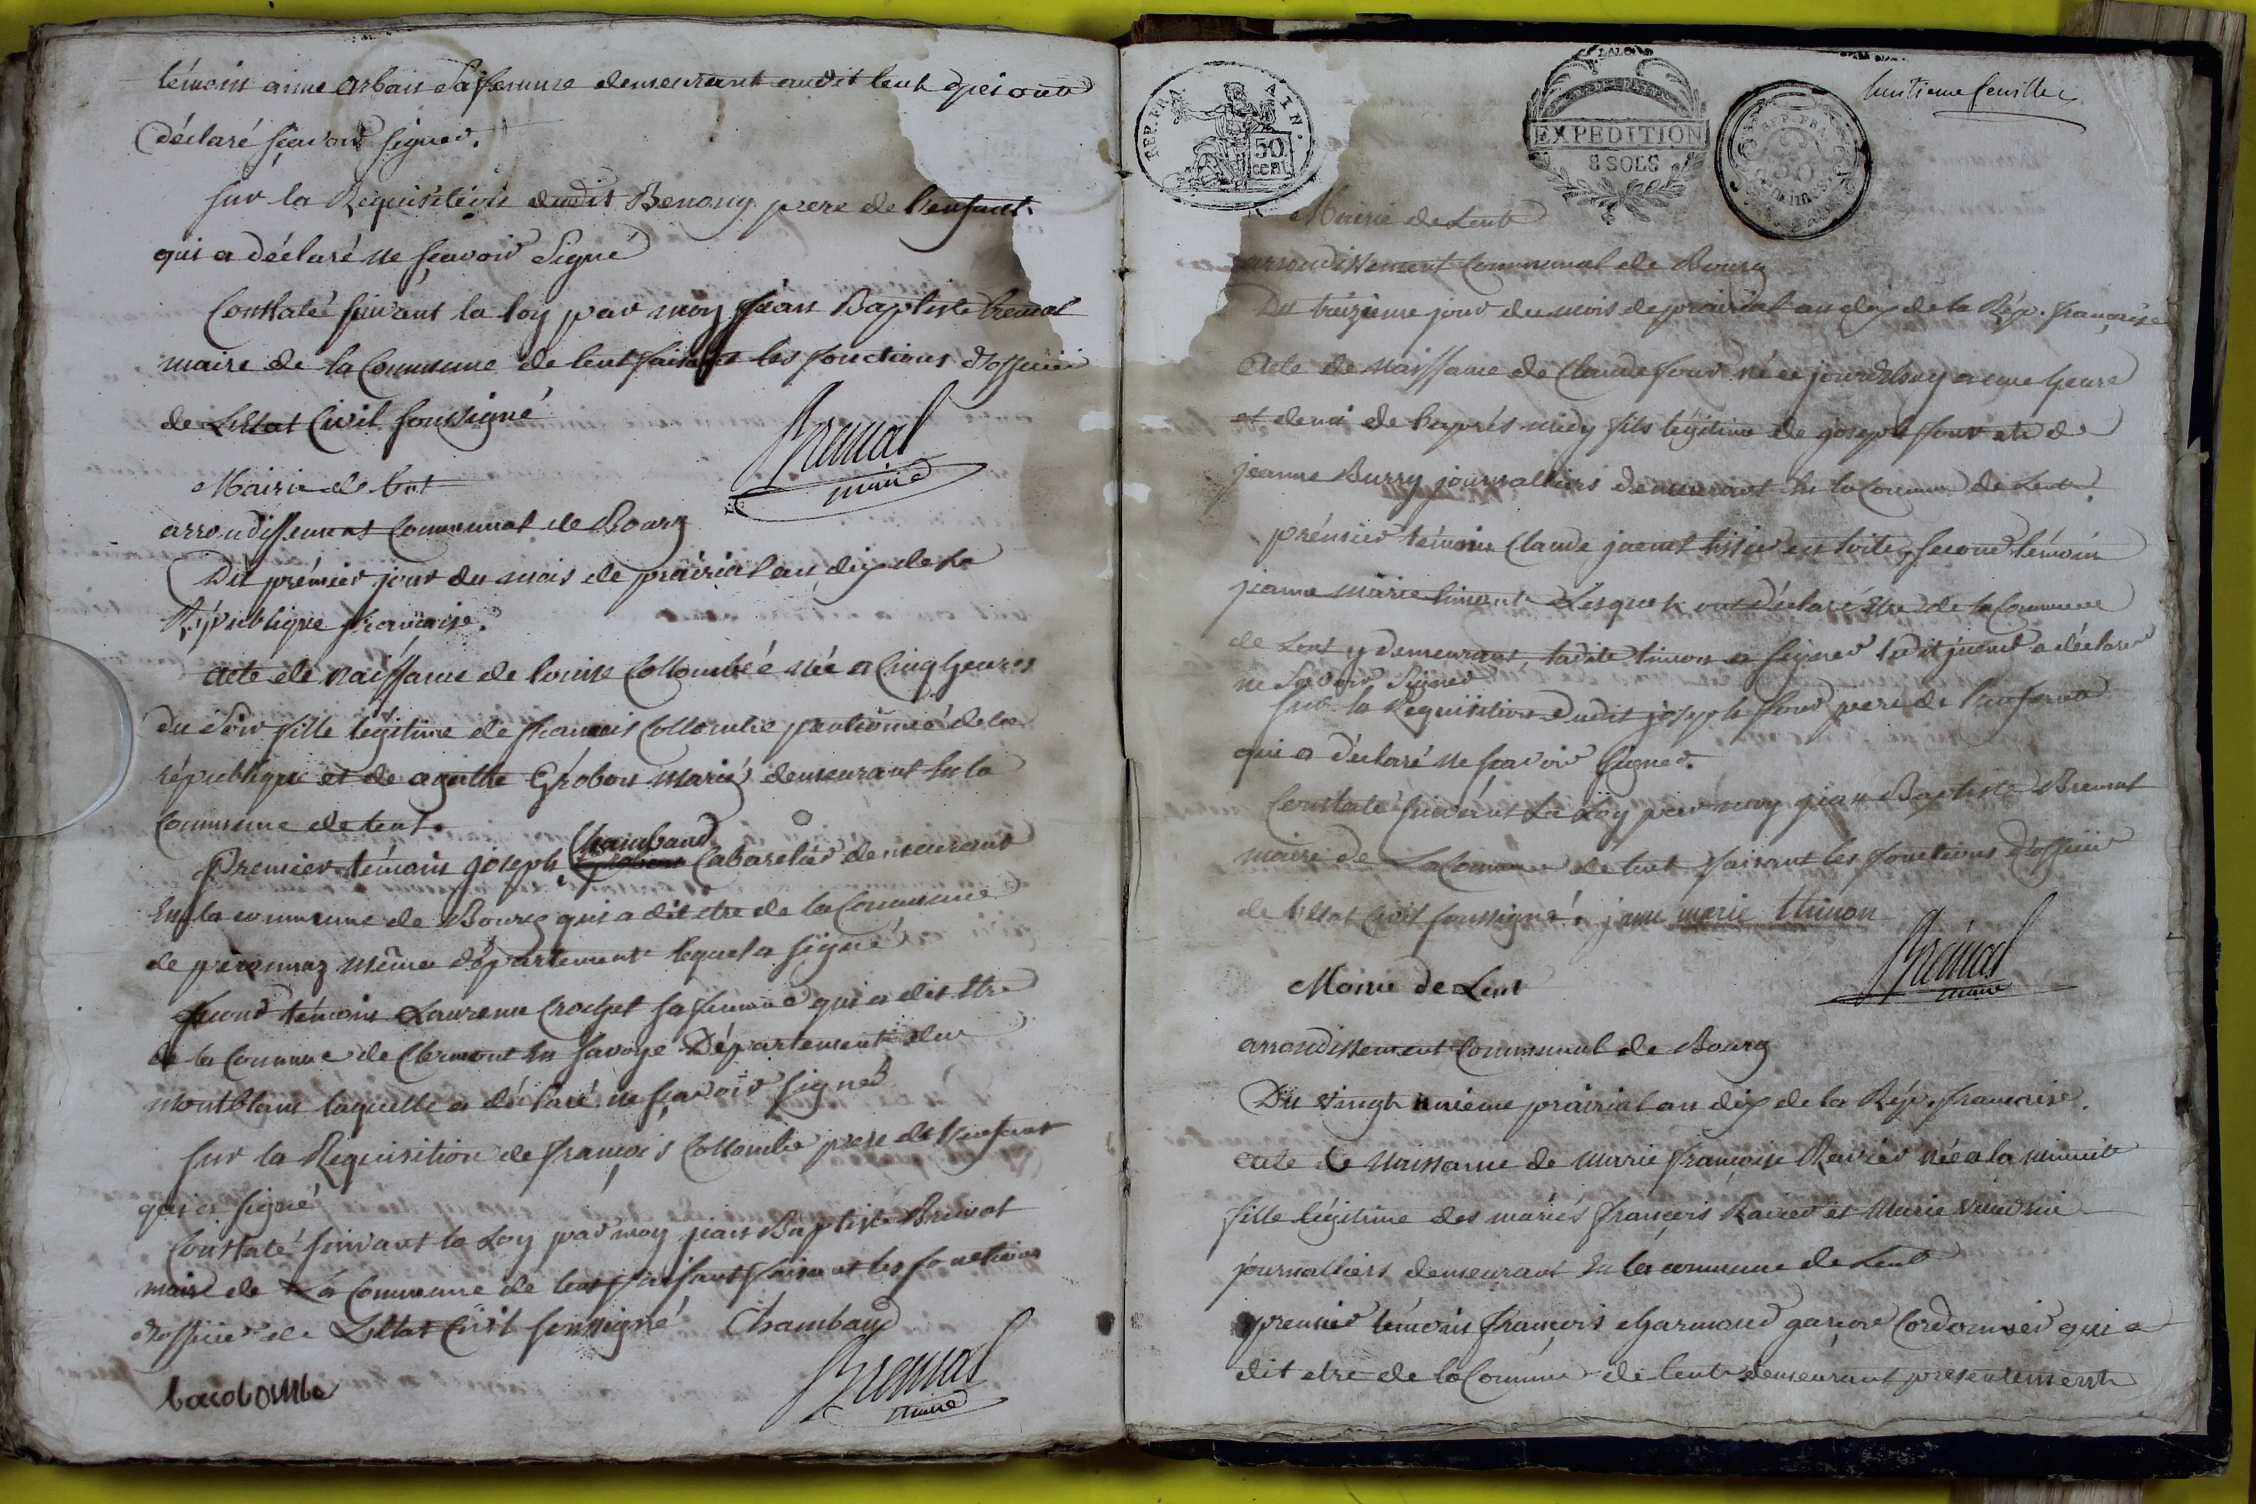 témoin anne Arban Sa femme demeurant audit lent qui ont
déclaré sçavoir signer.
sur la Réquisition dudit Benony pere de l'enfant.
qui a déclaré ne sçavoir Signé
Constaté suivant la loy par moy jean Baptiste Bremal
maire de la Commune de lent faisant les fonctions d'officier
de L'Etat Civil soussigné
Bremal
maire
Mairie de lent
arrondissement Communal de Bourg
Du prémier jour du mois de prairial an dix de la
République françaisse.
acte de naissance de louise Collombée née a Cinq heures
du Soir fille legitime de françois Collombe pentionné de la
république et de agathe Grobon mariés demeurant En la
Commune de lent.
Premier témoin joseph Chambaud Cabaretier demeurant
En la commune de Bourg qui a dit etre de la Commune
de peronnaz même département lequel a signé
second témoin Laurence Crochet sa femme qui a dit Etre
de la Commune de Clermont En Savoye Département du
montblanc laquelle a déclaré ne sçavoir signer
sur la Requisition de françois Collombe pere de l'enfant
qui a signé
Constaté suivant la Loy par moy jean Baptiste Bremal
maire de La Commune de lent faisant les fonctions
d'officier de L'Etat Civil soussigné Chambaud
Bremal
maire
REP. FRA. NATN.
50
CENT.
EXPEDITION
8 SOLS
REP. FRA.
huitieme feuillet
Mairie de Lent
arrondissement Communal de Bourg
Du treizieme jour du mois de prairial an dix de la Rép. française
Acte de naissance de Claude four né ce jourdhuy a une heure
et demi de l'après midy fils légitime de joseph four et de
jeanne Burry journalliers demeurant En la Commune de Lent.
prémier témoin Claude juenet tissier en toile, second témoin
jeanne marie timon Lesquels ont déclaré Etre de la Commune
de Lent y demeurant, ladite timon a signer ledit juenet a déclaré
ne Savoir Signer
sur la Requisition Dudit joseph four pere de l'enfant
qui a déclaré ne sçavoir signer.
Constaté suivant La Loy par moy jean Baptiste Bremal
maire de La Commune de lent faisant les fonctions d'officier
de l'Etat Civil soussigné. jane marie thimon
Brémal
maire
Mairie de Lent
arrondissement Communal de Bourg
Du vingt unieme prairial an dix de la Rép. francaise.
acte de Naissance de marie françoise Ravier née a la minuit
fille légitime des mariés françois Ravier et Marie
journalliers demeurant En la commune de Lent
premier témoin françois Charnaud garçon Cordonnier qui a
dit etre de la Commune de lent demeurant presentement